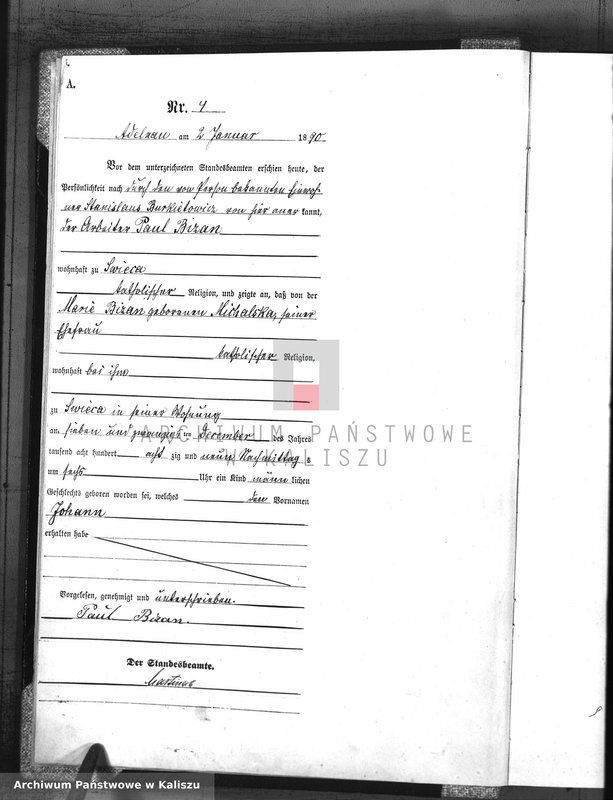 A.
Nr. 4
Adelnau am 2 Januar 1890.
Vor dem unterzeichneten Standesbeamten erschien heute, der
Persönlichkeit nach durch den von Person bekannten Einwoh-
ner Stanislaus Burkietowicz von hier aner kannt,
der Arbeiter Paul Bizan
wohnhaft zu Swieca
katholischer Religion, und zeigte an, daß von der
Marie Bizan geborenen Michalska, seiner
Ehefrau
katholischer Religion,
wohnhaft bei ihm
zu Swieca in seiner Wohnung
am sieben und zwanzigs ten December des Jahres
tausend acht hundert acht zig und neun Nachmittag s
um sechs Uhr ein Kind männ lichen
Geschlechts geboren worden sei, welches den Vornamen
Johann
erhalten habe
Vorgelesen, genehmigt und unterschrieben.
Paul Bizan.
Der Standesbeamte.
ARCHIWUM PAŃSTWOWE
W KALISZU
Archiwum Państwowe w Kaliszu